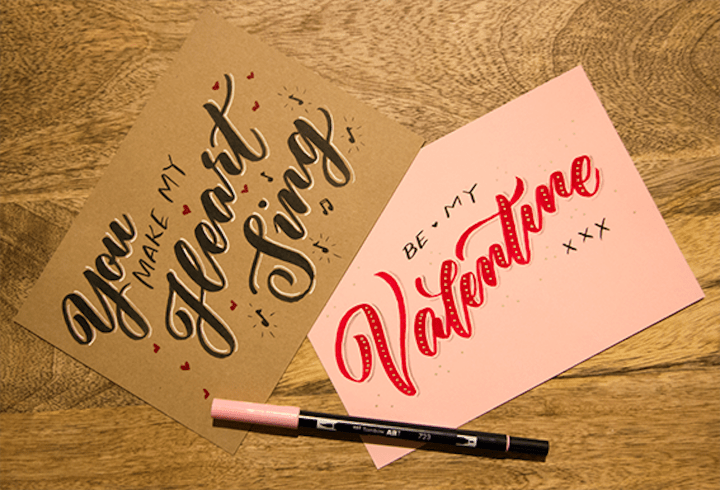 You
MAKE MY
Heart
Sing
BE ♥ MY
Valentine
x x x
Tombow ABT
723